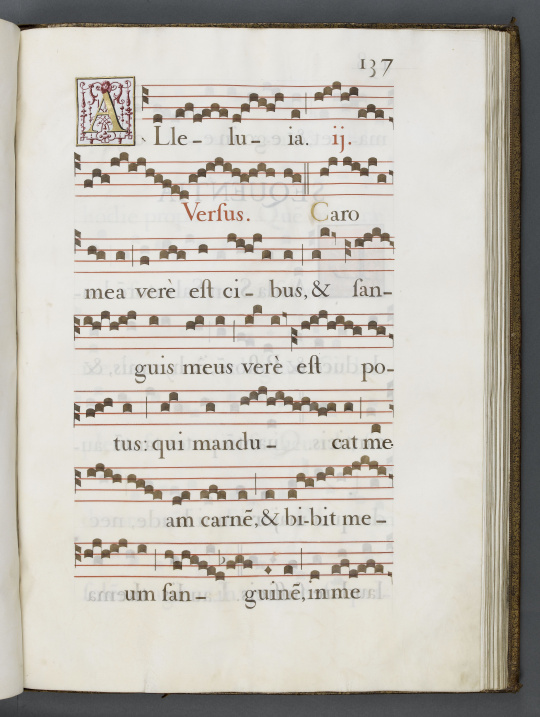 137
ALle- lu- ia. ij.
Verſus. Caro
mea verè eſt ci- bus, & ſan-
guis meus verè eſt po-
tus: qui mandu- cat me
am carnē, & bi-bit me-
um ſan- guinē, in me